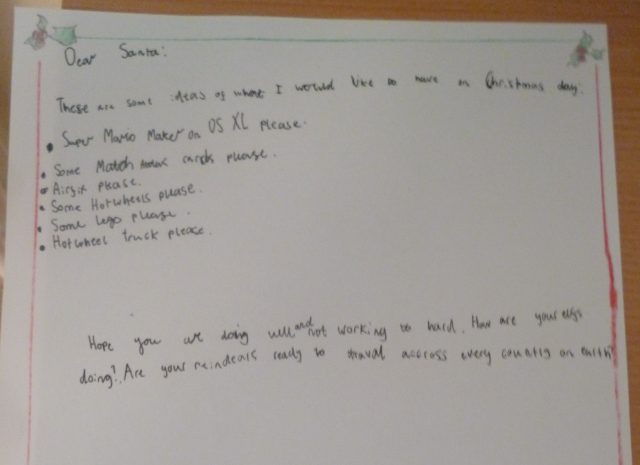 Dear Santa:
These are some ideas of what I would like to have on Christmas day:
• Super Mario Maker on DS XL please.
• Some Match Attax cards please.
• Airfix please.
• Some Hotwheels please.
• Some Lego please.
• Hotwheel truck please.
Hope you are doing well and not working to hard. How are your elfs
doing? Are your reindears ready to traval accross every country on earth?